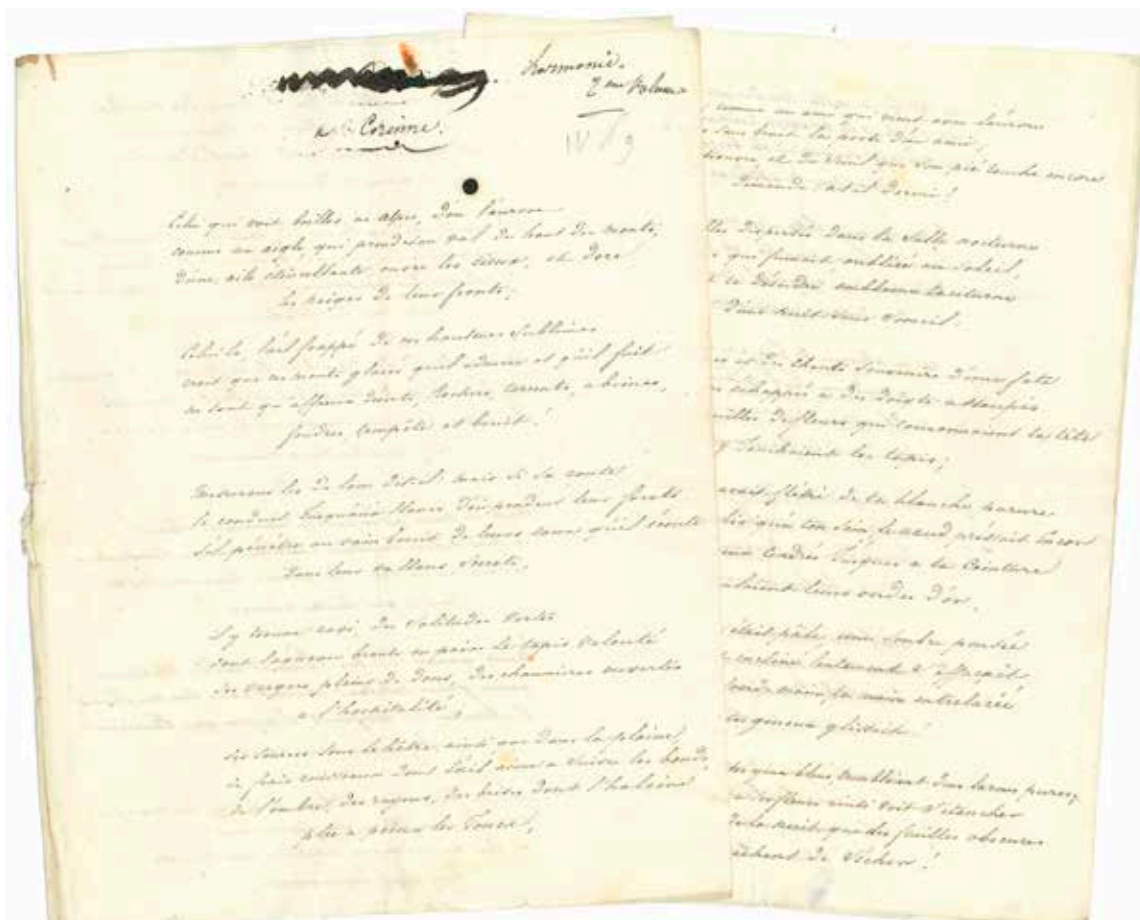 harmonie.
2eme Volume
a Corinne.
IV 9
Celui qui voit briller ces alpes, d'ou l'aurore
comme un aigle, qui prend son vol du haut des monts,
d'une aile étincellante ouvre les cieux, et dore
les neiges de leur fronts;
Celui la, l'œil frappé de ces hauteurs sublimes
croit que ces monts glacés qu'il admire et qu'il fuit
ne sont qu'affreux déserts, Rochers, torrents, abimes,
foudres tempête et bruit!
mesurons les de loin dit-il mais si sa route
le conduit jusqu'aux flancs d'ou pendent leur forets
s'il pénètre au vain bruit de leurs eaux qu'il écoute
dans leur vallons secrets,
il y trouve ravi, des solitudes vertes
dont l'agneau broute en paix le tapis velouté
des vergers pleins de dons, des chaumières ouvertes
a l'hospitalité,
des sources sous le hêtre ainsi que dans la plaine,
de frais ruisseaux dont l'œil aime a suivre les bonds,
de l'ombre, des rayons, des brises dont l'haleine
plie a peine les joncs,
comme un ami qui vient avec l'aurore
sans bruit la porte d'un ami,
et du seuil que son pié touche encore
demande a-t-il dormi!
dispersés dans la salle nocturne
qui fumait, oubliée au soleil,
ce désordre emblème taciturne
d'une nuit sans sommeil.
et des chants souvenirs d'une fete
échappés a des doigts assoupis
de fleurs qui couronnaient ta tête
jonchaient les tapis;
avait flétri de ta blanche parure
qu'a ton sein, le nœud pressait encor
cendrés jusques a ta ceinture
leurs ondes d'or.
était pâle, une sombre pensée
incliné lentement
main, ta main entrelacée
genoux glissait!
bleus, tremblaient deux larmes pures,
fleurs ainsi voit s'étancher
de la nuit, que des feuilles obscures
de sécher!